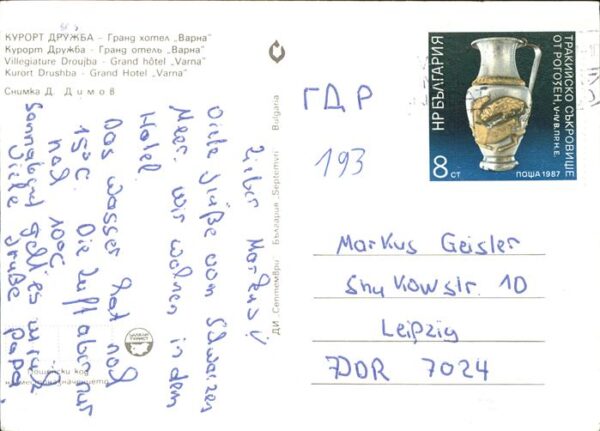 КУРОРТ ДРУЖБА - Гранд хотел „Варна"
Курорт Дружба - Гранд отель „Варна"
Villegiature Droujba - Grand hôtel „Varna"
Kurort Drushba - Grand Hotel „Varna"
Снимка Д. Димов
Lieber Markus!
Viele Grüße vom Schwarzen
Meer. Wir wohnen in dem
Hotel.
Das Wasser hat noch
15°C. Die Luft aber nur
noch 10°C
Sonnabend geht es zurück
Viele Grüße Papa
ДИ „Септември" България - Septemvri Bulgaria
Пощенски код
на местоназначението
ГДР
193
НР БЪЛГАРИЯ
8 СТ
ТРАКИЙСКО СЪКРОВИЩЕ
ОТ РОГОЗЕН, V-IV В. ПР. Н. Е.
ПОЩА 1987
Markus Geisler
Shukowstr. 10
Leipzig
DDR 7024